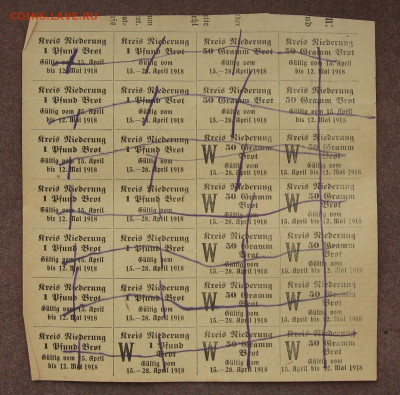 COINS.LAVE.RU
Kreis Niederung Kreis Niederung Kreis Niederung Kreis Niederung
1 Pfund Brot 1 Pfund Brot 50 Gramm Brot 50 Gramm Brot
Gültig vom 15. April Gültig vom Gültig vom Gültig vom 15. April
bis 12. Mai 1918 15.—28. April 1918 15.—28. April 1918 bis 12. Mai 1918
Kreis Niederung Kreis Niederung Kreis Niederung Kreis Niederung
1 Pfund Brot 1 Pfund Brot 50 Gramm Brot 50 Gramm Brot
Gültig vom 15. April Gültig vom Gültig vom Gültig vom 15. April
bis 12. Mai 1918 15.—28. April 1918 15.—28. April 1918 bis 12. Mai 1918
Kreis Niederung Kreis Niederung Kreis Niederung Kreis Niederung
1 Pfund Brot 1 Pfund Brot W 50 Gramm Brot W 50 Gramm Brot
Gültig vom 15. April Gültig vom Gültig vom Gültig vom
bis 12. Mai 1918 15.—28. April 1918 15.—28. April 1918 15. April bis 12. Mai 1918
Kreis Niederung Kreis Niederung Kreis Niederung Kreis Niederung
1 Pfund Brot 1 Pfund Brot W 50 Gramm Brot W 50 Gramm Brot
Gültig vom 15. April Gültig vom Gültig vom Gültig vom
bis 12. Mai 1918 15.—28. April 1918 15.—28. April 1918 15. April bis 12. Mai 1918
Kreis Niederung Kreis Niederung Kreis Niederung Kreis Niederung
1 Pfund Brot 1 Pfund Brot W 50 Gramm Brot W 50 Gramm Brot
Gültig vom 15. April Gültig vom Gültig vom Gültig vom
bis 12. Mai 1918 15.—28. April 1918 15.—28. April 1918 15. April bis 12. Mai 1918
Kreis Niederung Kreis Niederung Kreis Niederung Kreis Niederung
1 Pfund Brot 1 Pfund Brot W 50 Gramm Brot W 50 Gramm Brot
Gültig vom 15. April Gültig vom Gültig vom Gültig vom
bis 12. Mai 1918 15.—28. April 1918 15.—28. April 1918 15. April bis 12. Mai 1918
Kreis Niederung Kreis Niederung Kreis Niederung Kreis Niederung
1 Pfund Brot W 1 Pfund Brot W 50 Gramm Brot W 50 Gramm Brot
Gültig vom 15. April Gültig vom Gültig vom Gültig vom
bis 12. Mai 1918 15.—28. April 1918 15.—28. April 1918 15. April bis 12. Mai 1918